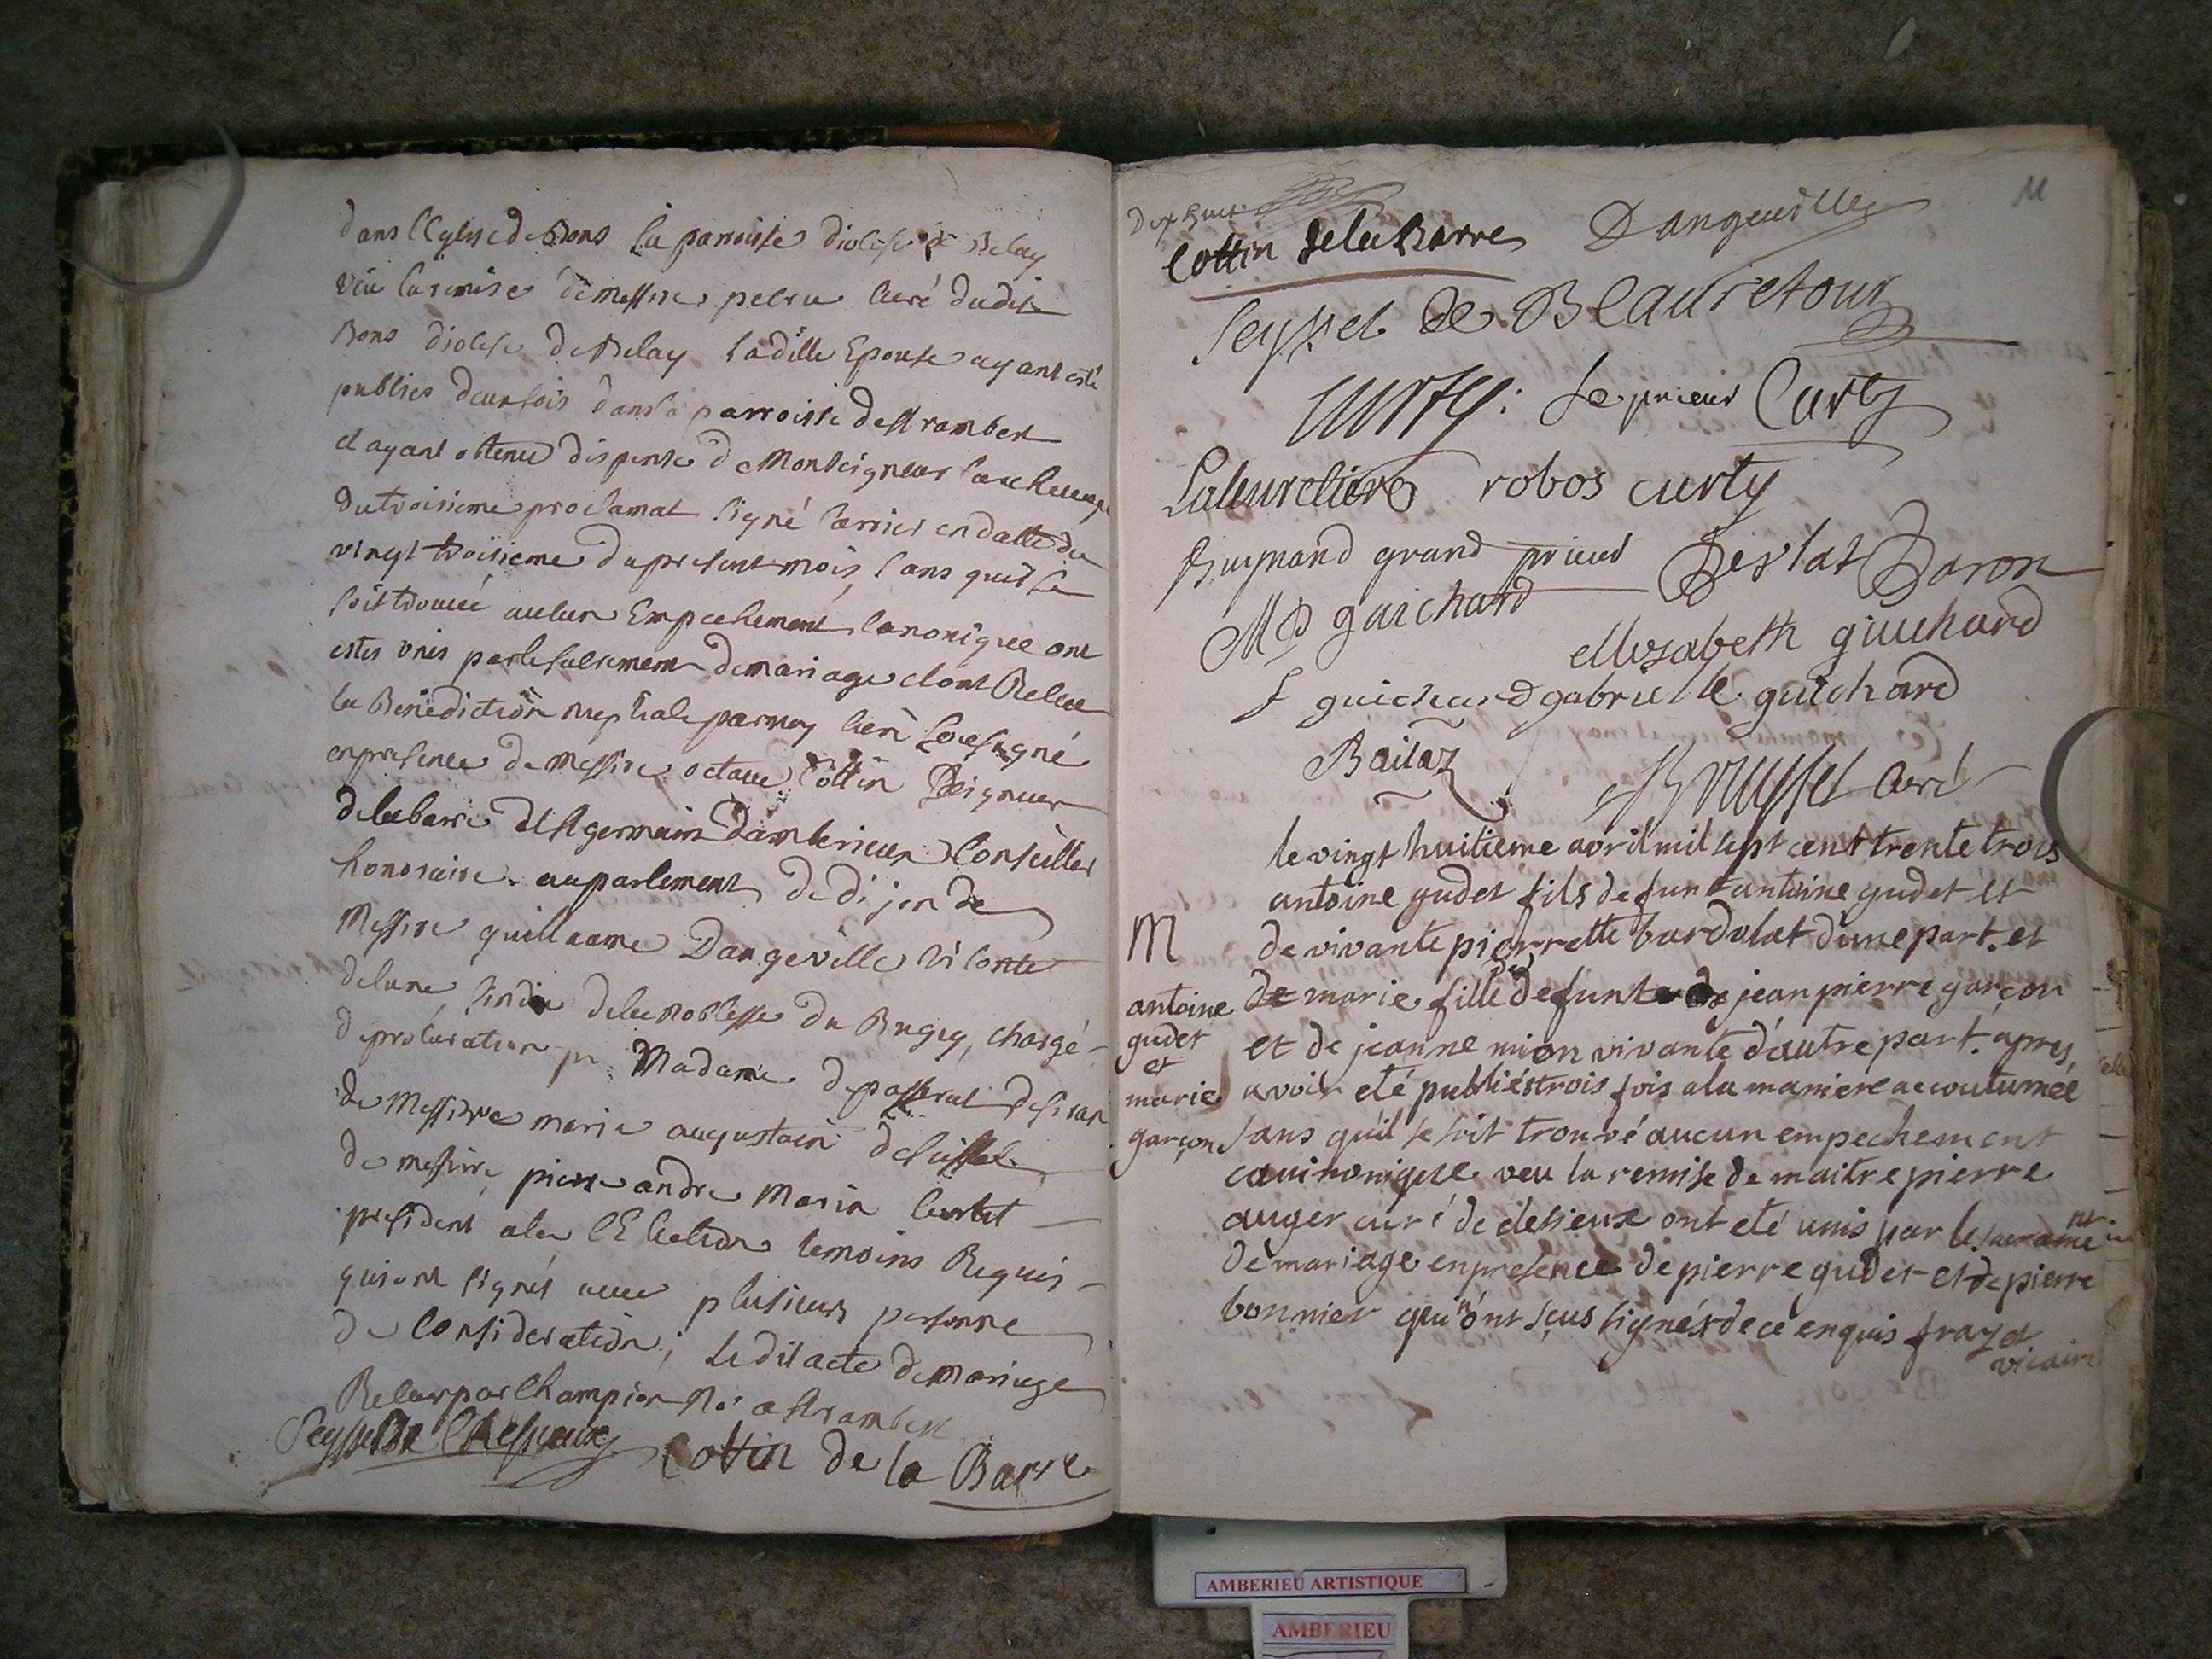 dans l'Eglise de Bons sa parroisse diocese de Belay
veu la remise de messire pelru curé dudit
Bons diocese de Belay ladille Epouse ayant esté
publies deux fois dans la parroisse de st rambert
et ayant obtenu dispense de Monseigneur l'archeveque
du troisieme proclamat signé carrier en datte du
vingt troisieme du present mois sans quil se
soit trouvé aucun Empechement canonique ont
estes unis par le sacrement de mariage et ont Relue
la Benediction nuptiale par moy curé soussigné
en presence de messire octave Cottin Seigneur
de la barre de st germain dambericux Conseiller
honoraire au parlement de dijon de
Messire guillaume Dangeville viconte
de lune sindic de la noblesse du Bugey, chargé
de procuration pr Madame de passerat de siran
de Messire marie augustain de seissel
de messire pierre andre Marin
president a l'Election temoins Requis
qui ont signés avec plusieurs personne
de Consideration; le dit acte de Mariage
Relue par Champion No: a st rambert
Cottin de la Barre
11
Cottin delabarre Dangeville
Seyssel de Beauretour
Curty: le prieur Curty
robos curty
grand prieur Baron
MD guichard
Elizabeth guichard
f guichard gabrielle guichard
Bailaz
curé
le vingt huitieme avril mil sept cent trente trois
antoine gudet fils de funt antoine gudet et
M de vivante pierrette bardolat d'une part. et
antoine de marie fille de funt de jean pierre garçon
gudet et de jeanne mion vivante d'autre part. apres
et
marie avoir eté publiés trois fois a la maniere accoutumée
garçon sans qu'il se soit trouvé aucun empechement
cauinonique veu la remise de maitre pierre
auger curé de ont eté unis par le sacrament
de mariage en presence de pierre gudet et de pierre
bonnier qui n'ont sçus signés de ce enquis frazet
vicaire
AMBERIEU ARTISTIQUE
AMBERIEU